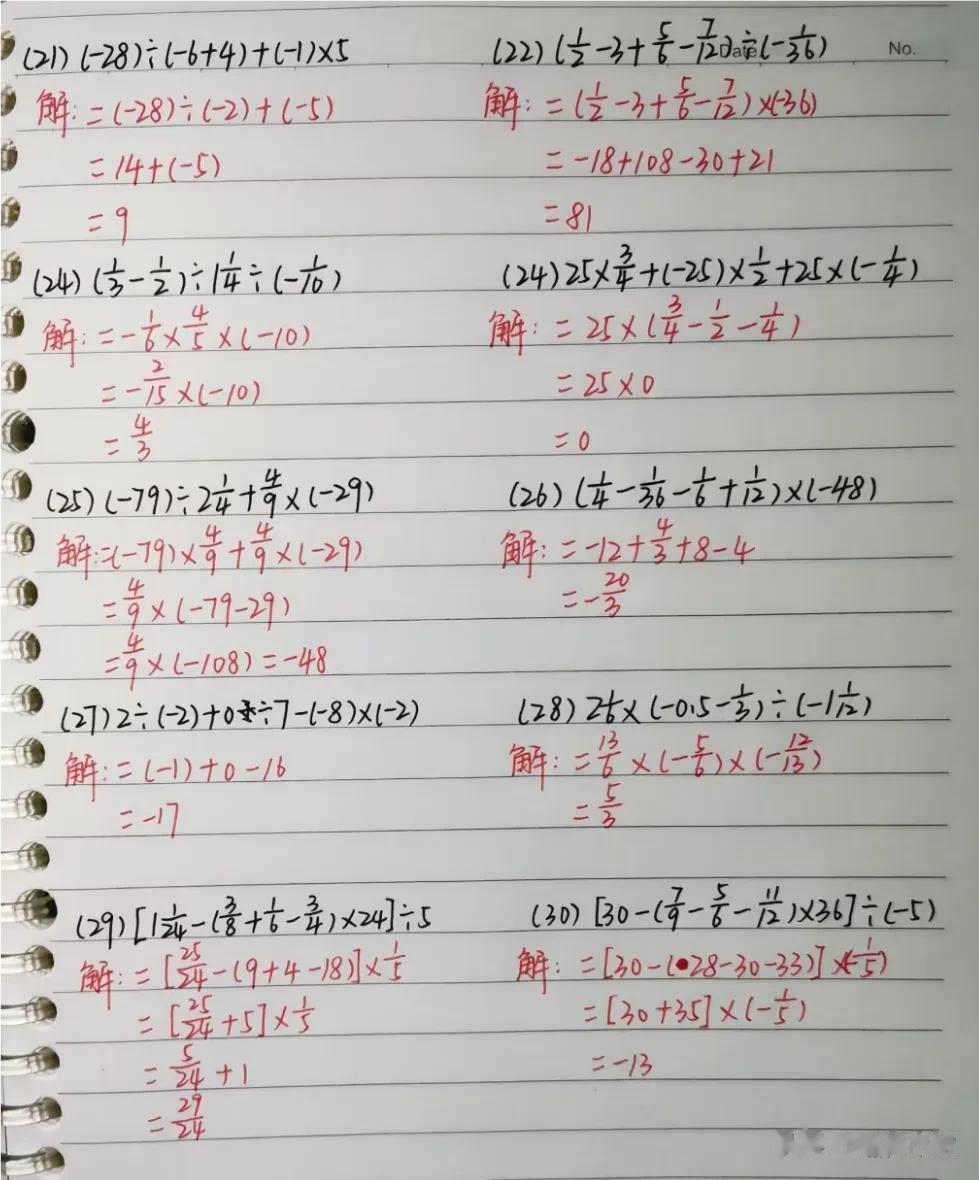 (21) (-28)÷(-6+4)+(-1)×5
解: =(-28)÷(-2)+(-5)
=14+(-5)
=9
(22) (1/2-3+5/6-7/12)÷(-1/36)
Date
No.
解: =(1/2-3+5/6-7/12)×(-36)
=-18+108-30+21
=81
(24) (1/3-1/2)÷1 1/4÷(-1/10)
解: =-1/6×4/5×(-10)
=-2/15×(-10)
=4/3
(24) 25×3/4+(-25)×1/2+25×(-1/4)
解: =25×(3/4-1/2-1/4)
=25×0
=0
(25) (-79)÷2 1/4+4/9×(-29)
解:=(-79)×4/9+4/9×(-29)
=4/9×(-79-29)
=4/9×(-108)=-48
(26) (1/4-1/36-1/6+1/12)×(-48)
解: =-12+4/3+8-4
=-20/3
(27) 2÷(-2)+0÷7-(-8)×(-2)
解: =(-1)+0-16
=-17
(28) 2 1/6×(-0.5-1/3)÷(-1 1/12)
解: =13/6×(-5/6)×(-12/13)
=5/3
(29) [1 1/24-(3/8+1/6-3/4)×24]÷5
解: =[25/24-(9+4-18)]×1/5
=[25/24+5]×1/5
=5/24+1
=29/24
(30) [30-(7/9-5/6-11/12)×36]÷(-5)
解: =[30-(28-30-33)]×(-1/5)
=[30+35]×(-1/5)
=-13